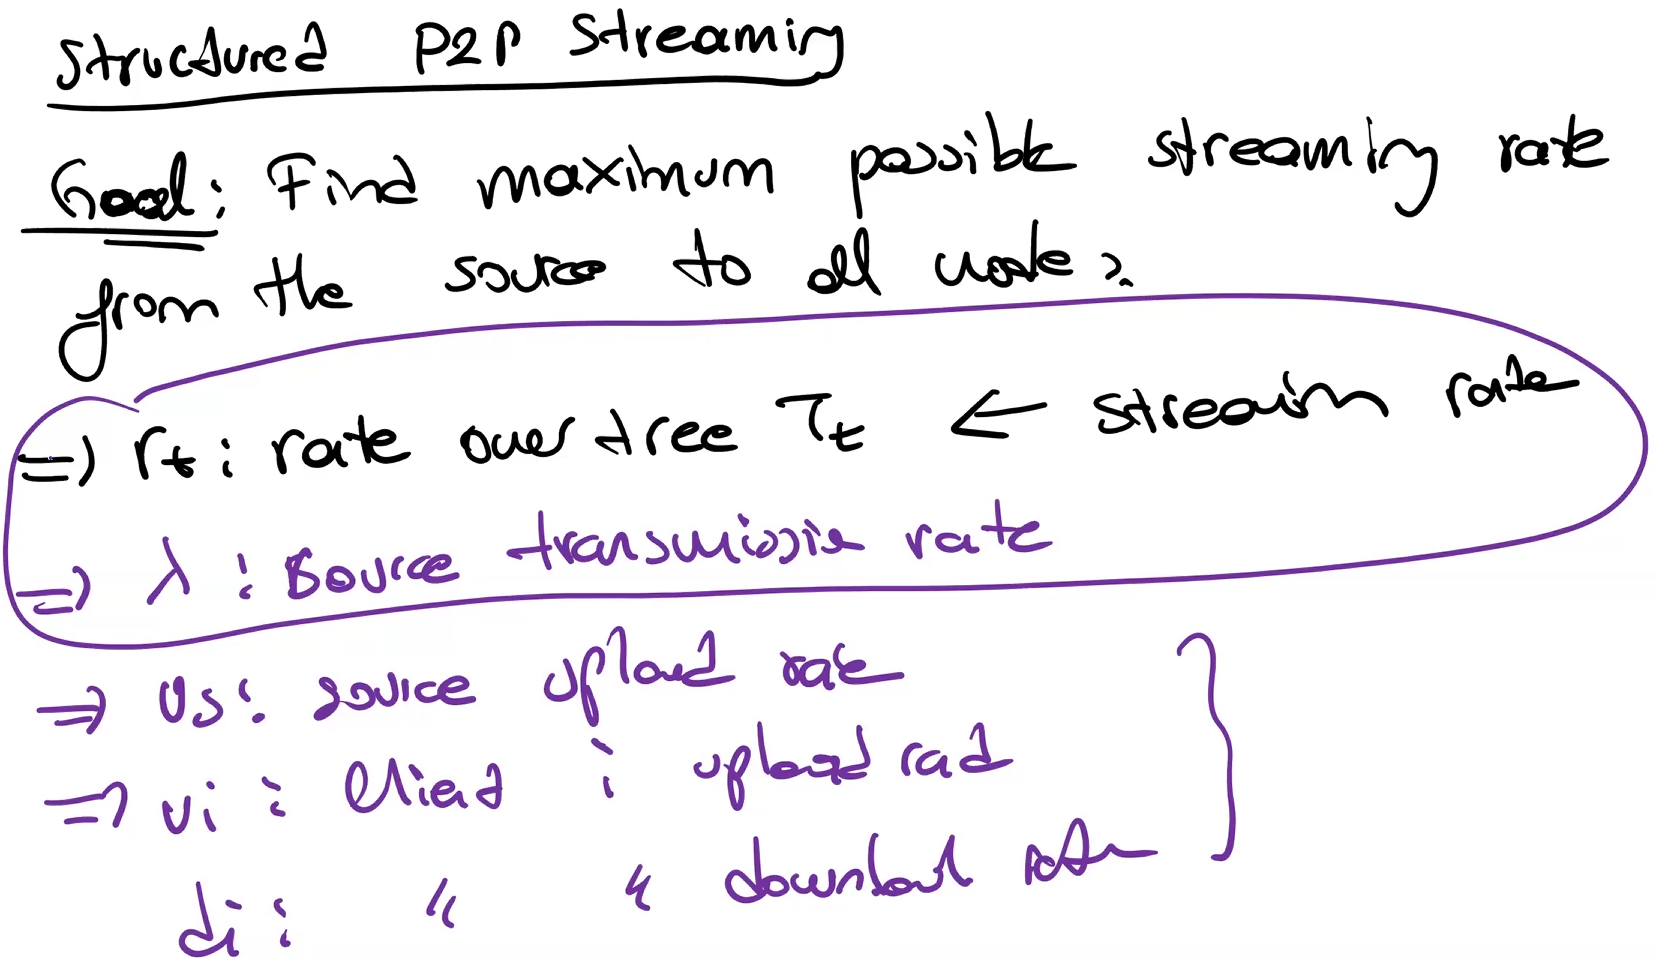 Structured P2P Streaming
Goal: Find maximum possible streaming rate
from the source to all node?
=> rt: rate over tree Tt ← stream rate
=> λ: Source transmission rate
=> Us: source upload rate
=> Ui: Client i upload rate
di: " " download rate